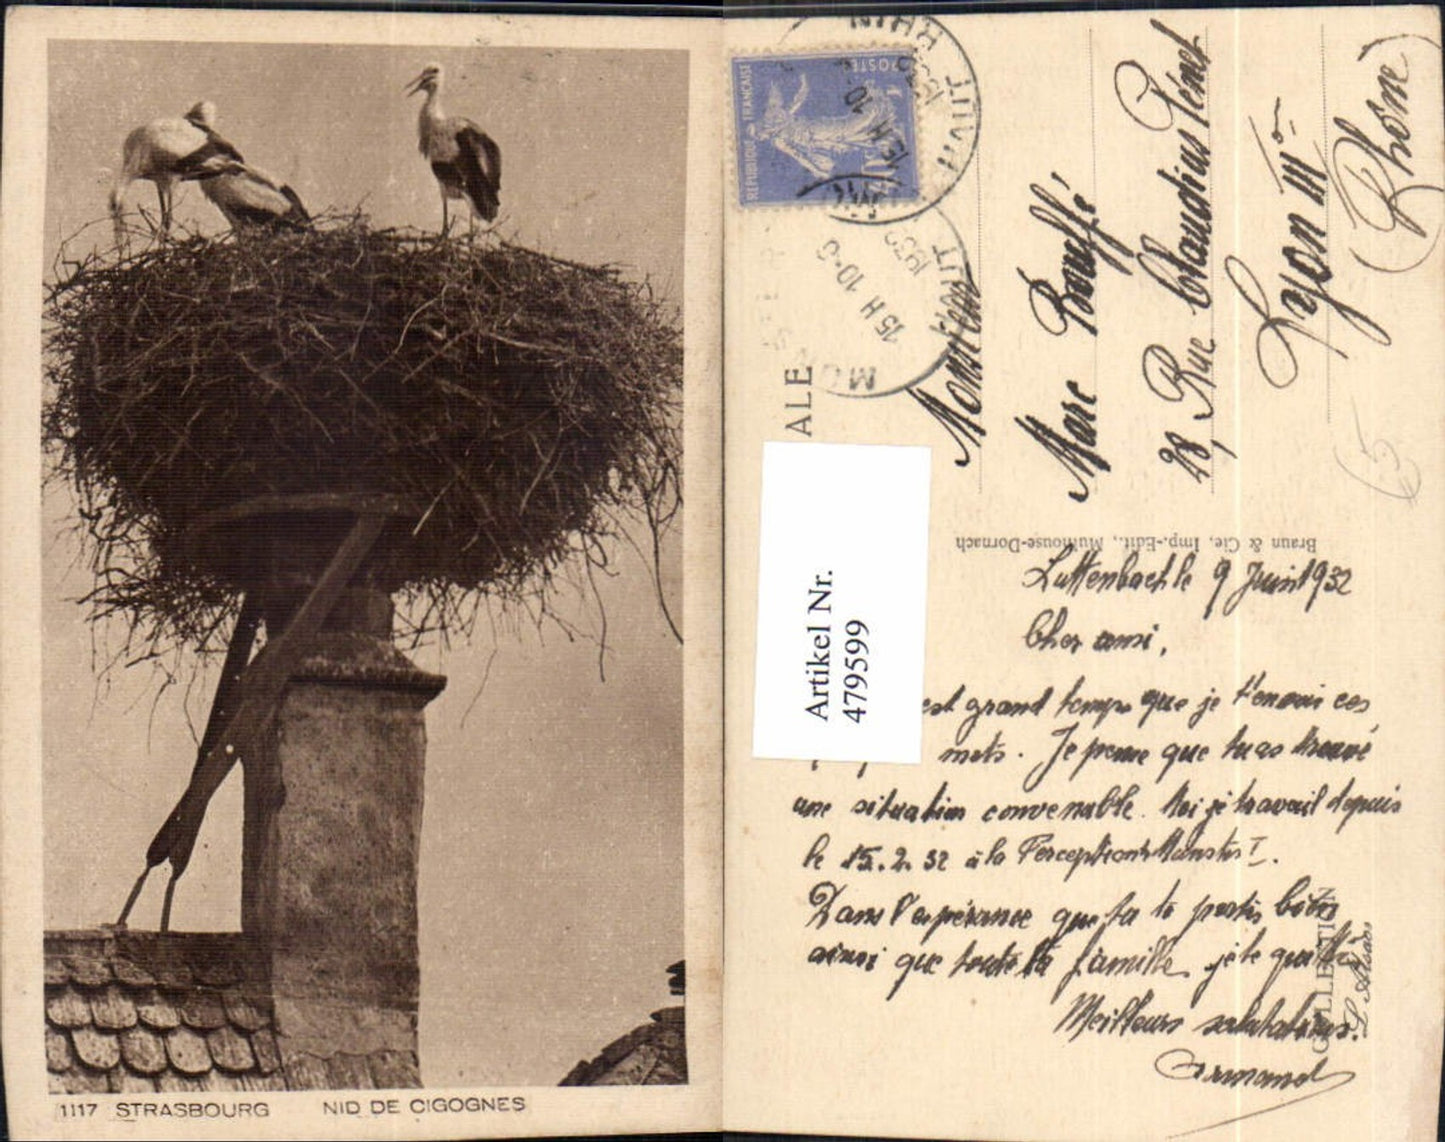 1117 STRASBOURG NID DE CIGOGNES
REPUBLIQUE FRANÇAISE
POSTES
40c
RHIN
15H 10-6
1932
HAUT
15H 10-6
1932
ALE
Artikel Nr.
479599
Monsieur
Marc
28, Rue Claudius Pénet
Lyon IIIe
(Rhône)
Braun & Cie, Imp.-Edit., Mulhouse-Dornach
COLLECTION
L'Alsace
Luttenbach le 9 Juin 1932
Cher ami,
est grand temps que je t'envoi ces
mots. Je pense que tu as trouvé
une situation convenable. Moi je travail depuis
le 15.2.32 à la Perception Munster I.
Dans l'espérance que ta te portes bien
ainsi que toute ta famille, je te quitte
Meilleurs salutations.
Armand